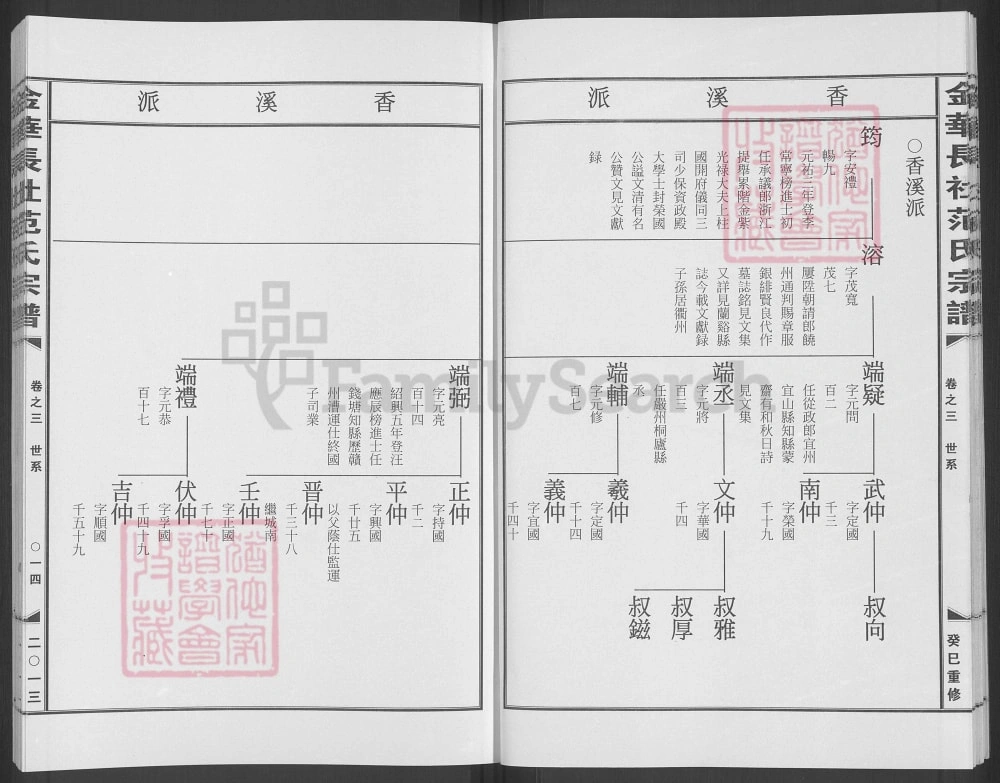 金華長社范氏宗譜
卷之三 世系
癸巳重修
香溪派
○香溪派
筠
字安禮
暢九
元祐三年登李
常寧榜進士初
任承議郎浙江
提舉累階金紫
光祿大夫上柱
國開府儀同三
司少保資政殿
大學士封榮國
公謚文清有名
公贊文見文獻
録
溶
字茂寬
茂七
屢陞朝請郎饒
州通判賜章服
銀緋賢良代作
墓誌銘見文集
又詳見蘭谿縣
誌今載文獻録
子孫居衢州
端疑
字元問
百二
任從政郎宜州
宜山縣知縣蒙
齋有和秋日詩
見文集
端丞
字元將
百三
任嚴州桐廬縣
丞
端輔
字元修
百七
武仲
字定國
千三
南仲
字榮國
千十九
文仲
字華國
千四
羲仲
字定國
千十四
義仲
字宜國
千四十
叔向
叔雅
叔厚
叔鎡
香溪派
端弼
字元亮
百十四
紹興五年登汪
應辰榜進士任
錢塘知縣歷贛
州漕運仕終國
子司業
端禮
字元恭
百十七
正仲
字持國
千二
平仲
字興國
千廿五
以父蔭仕監運
晋仲
千三十八
繼城南
壬仲
字正國
千七十
伏仲
字孚國
千四十九
吉仲
字順國
千五十九
金華長社范氏宗譜
卷之三 世系
○一四
二〇一三
FamilySearch